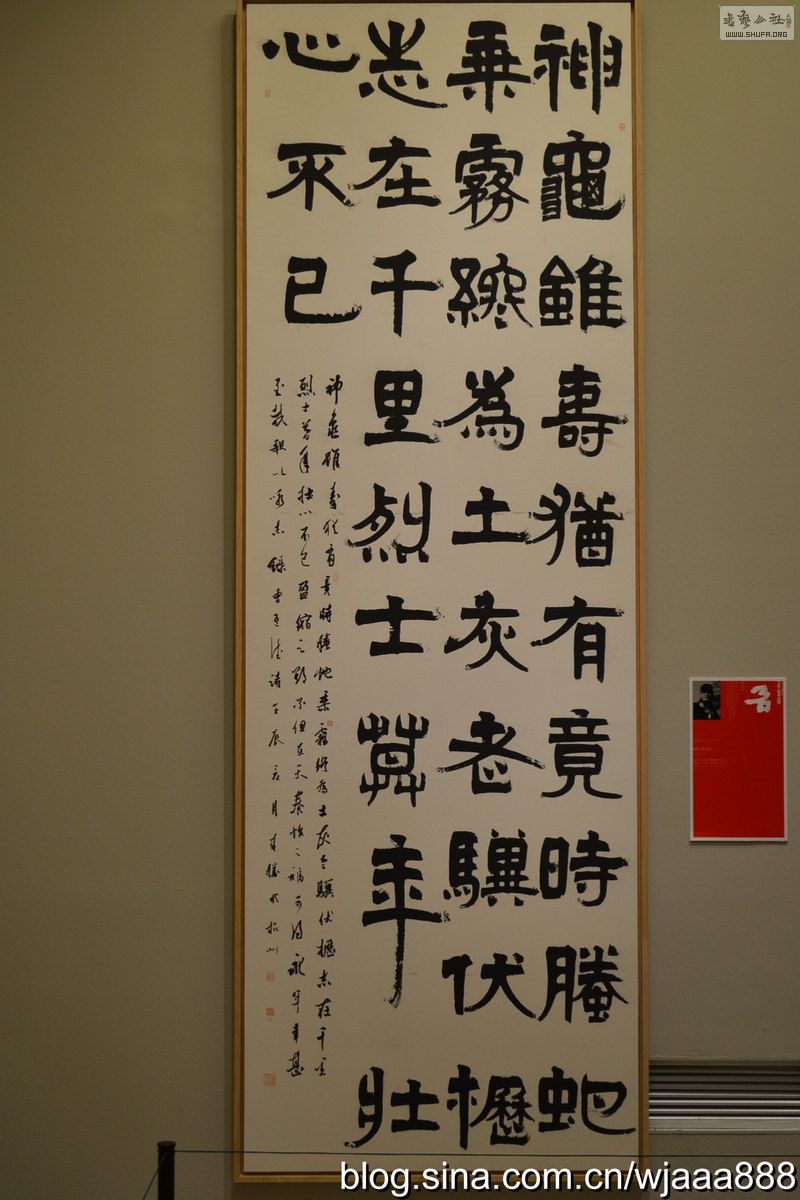 神龜雖壽猶有竟時螣虵
乘霧終為土灰老驥伏櫪
志在千里烈士暮年壯
心不已
神龜雖壽猶有竟時螣虵乘霧終為土灰老驥伏櫪志在千里
烈士暮年壯心不已盈縮之期不但在天養怡之福可得永年幸甚
至哉歌以咏志錄曹孟德詩壬辰月於杭州
書藝公社
WWW.SHUFA.ORG
blog.sina.com.cn/wjaaa888